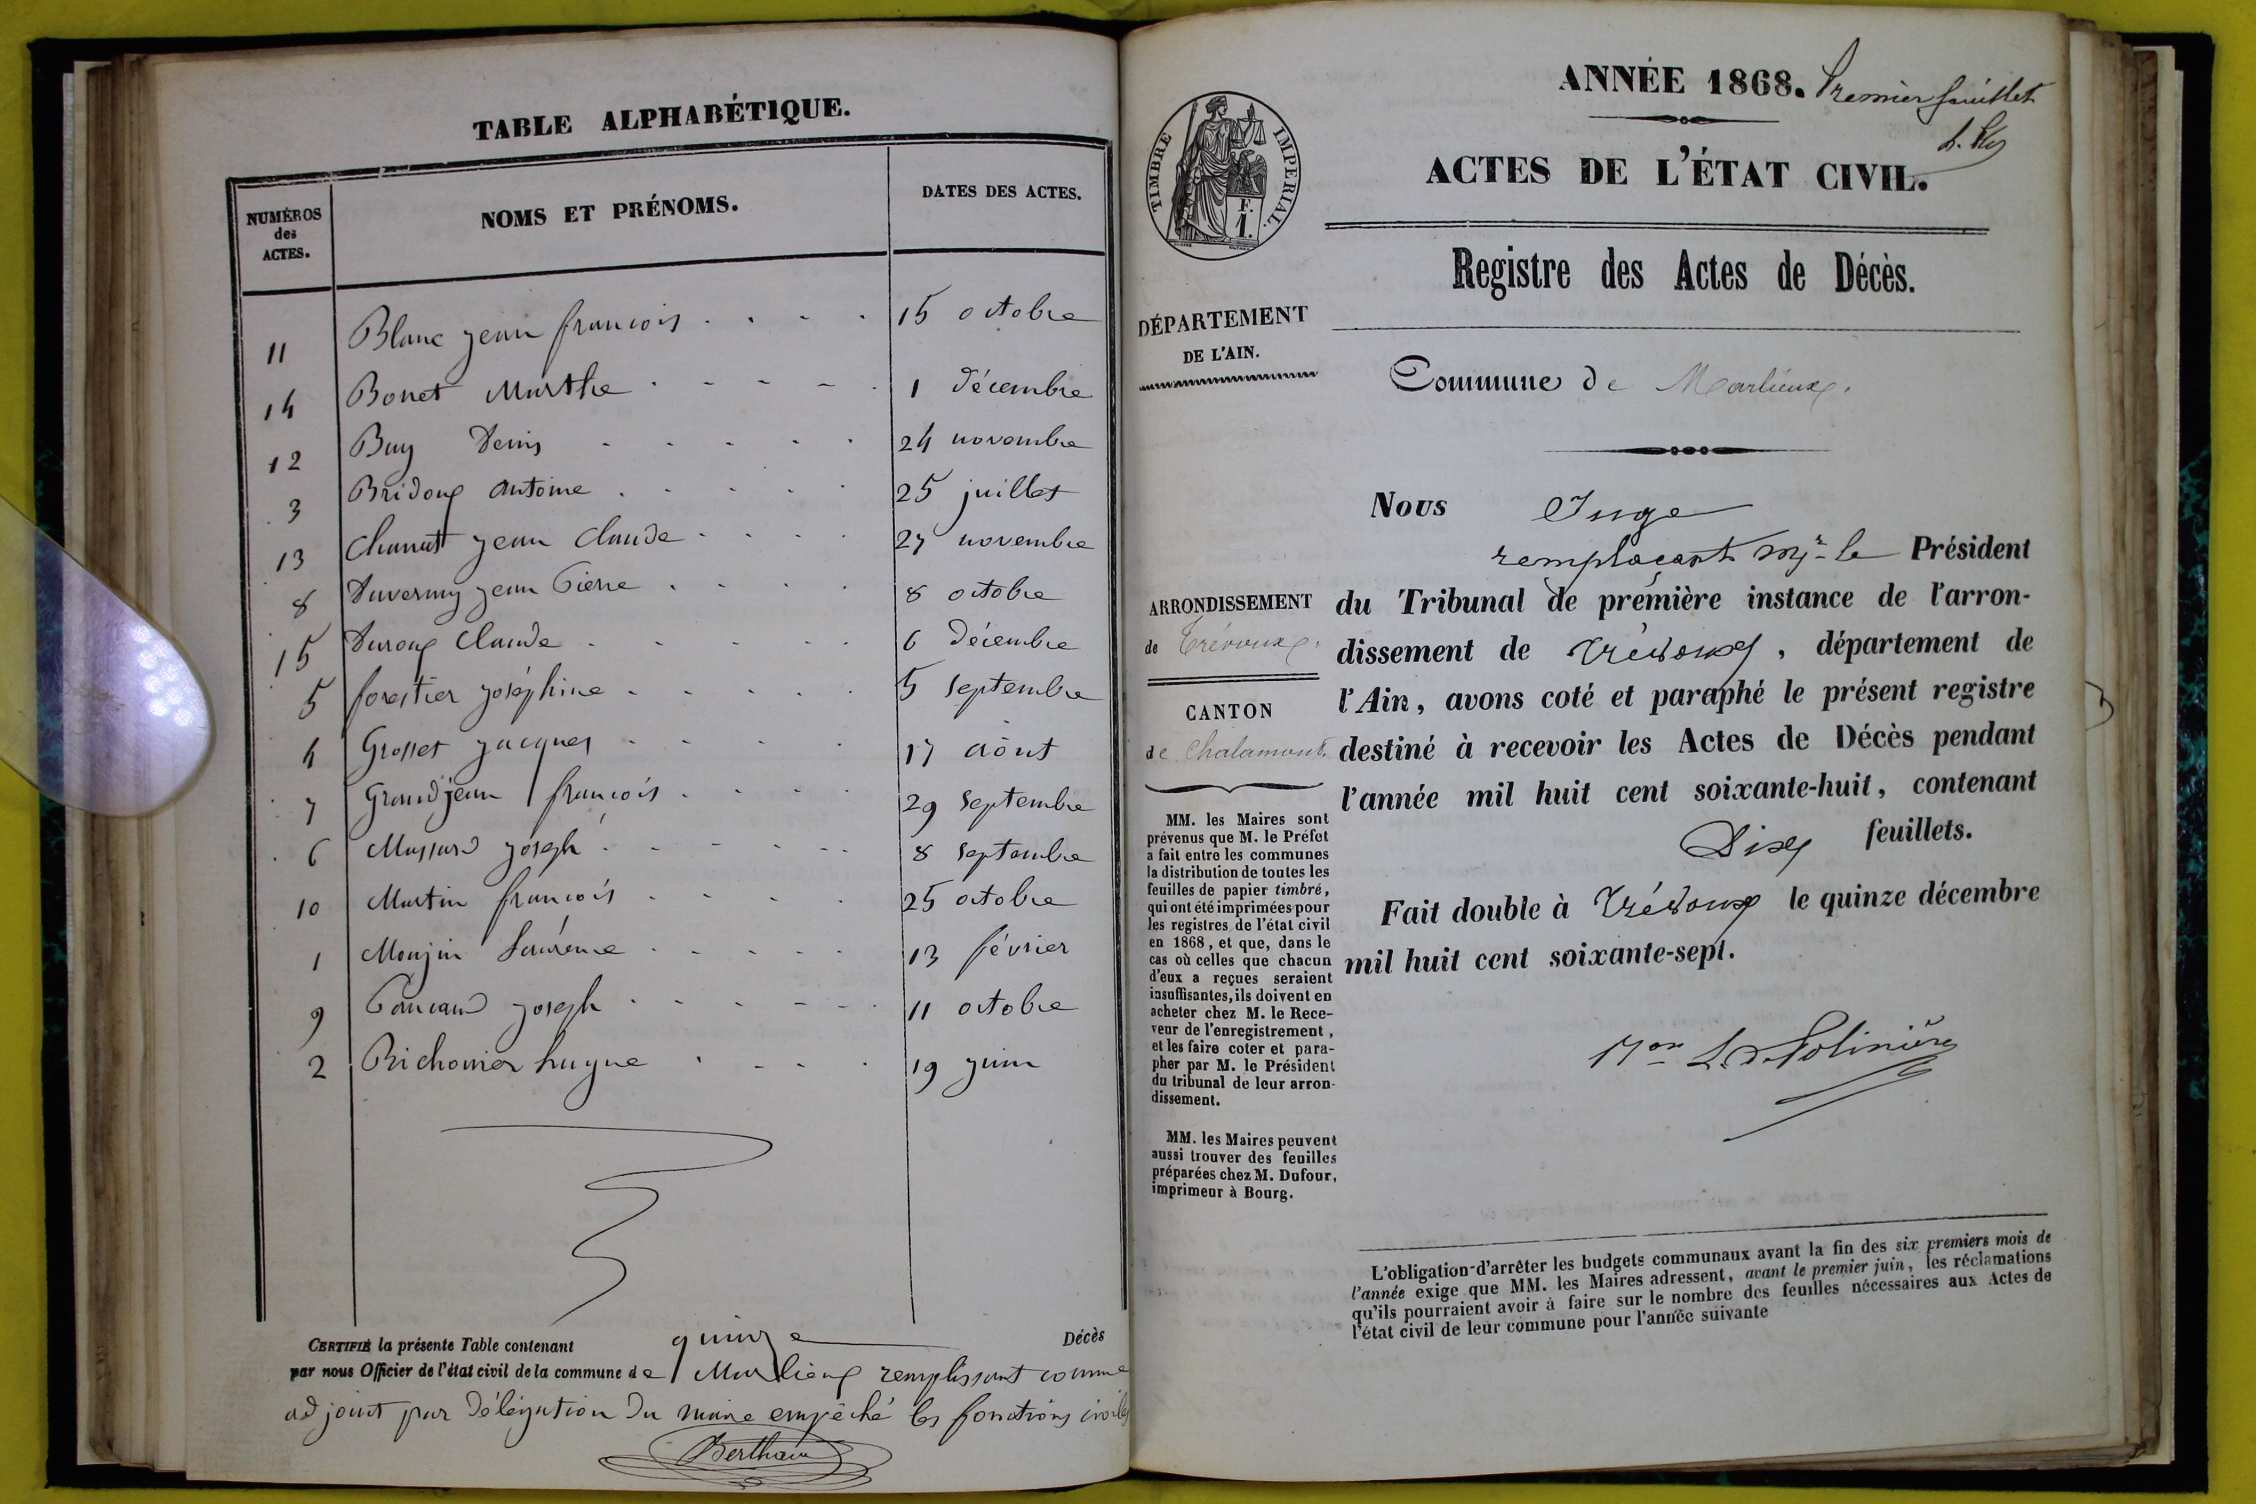 TABLE ALPHABÉTIQUE.
NUMÉROS des ACTES. NOMS ET PRÉNOMS. DATES DES ACTES.
11 Blanc jean francois 15 octobre
14 Bonet Marthe 1 décembre
12 Buy Denis 24 novembre
3 Bridoux antoine 25 juillet
13 Chanut jean claude 27 novembre
8 Duvernay jean Pierre 8 octobre
15 Duroux Claude 6 décembre
5 forestier joséphine 5 septembre
4 Grosset jacques 17 aôut
7 Grandjean francois 29 septembre
6 Massard joseph 8 septembre
10 Martin francois 25 octobre
1 Monjin Laurence 13 février
9 joseph 11 octobre
2 19 juin
CERTIFIÉ la présente Table contenant quinze Décès
par nous Officier de l'état civil de la commune de Marlieux remplissant comme
adjoint par délégation du maire empêché les fonctions civiles
ANNÉE 1868. Premier feuillet
ACTES DE L'ÉTAT CIVIL.
TIMBRE IMPERIAL.
F.
1.
Registre des Actes de Décès.
DÉPARTEMENT
DE L'AIN.
Commune de Marlieux.
Nous Juge
remplaçant Mr le Président
du Tribunal de première instance de l'arron-
dissement de Trévoux, département de
l'Ain, avons coté et paraphé le présent registre
destiné à recevoir les Actes de Décès pendant
l'année mil huit cent soixante-huit, contenant
Dix feuillets.
Fait double à Trévoux le quinze décembre
mil huit cent soixante-sept.
ARRONDISSEMENT
de Trévoux.
CANTON
de Chalamont.
MM. les Maires sont
prévenus que M. le Préfet
a fait entre les communes
la distribution de toutes les
feuilles de papier timbré,
qui ont été imprimées pour
les registres de l'état civil
en 1868, et que, dans le
cas où celles que chacun
d'eux a reçues seraient
insuffisantes, ils doivent en
acheter chez M. le Rece-
veur de l'enregistrement,
et les faire coter et para-
pher par M. le Président
du tribunal de leur arron-
dissement.
MM. les Maires peuvent
aussi trouver des feuilles
préparées chez M. Dufour,
imprimeur à Bourg.
L'obligation d'arrêter les budgets communaux avant la fin des six premiers mois de
l'année exige que MM. les Maires adressent, avant le premier juin, les réclamations
qu'ils pourraient avoir à faire sur le nombre des feuilles nécessaires aux Actes de
l'état civil de leur commune pour l'année suivante